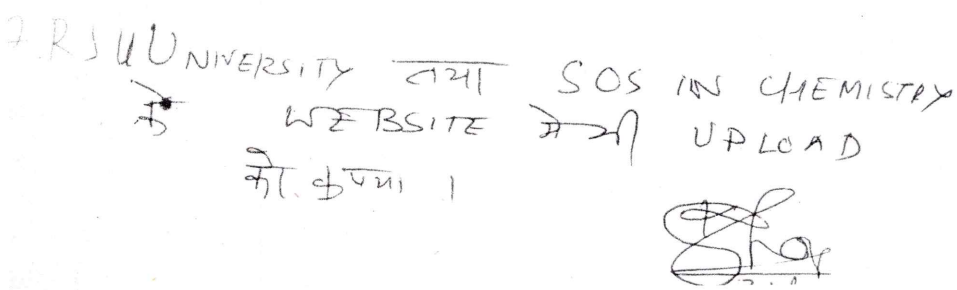 PRSU UNIVERSITY तथा SOS IN CHEMISTRY
के WEBSITE में भी UPLOAD
करे कृपया ।